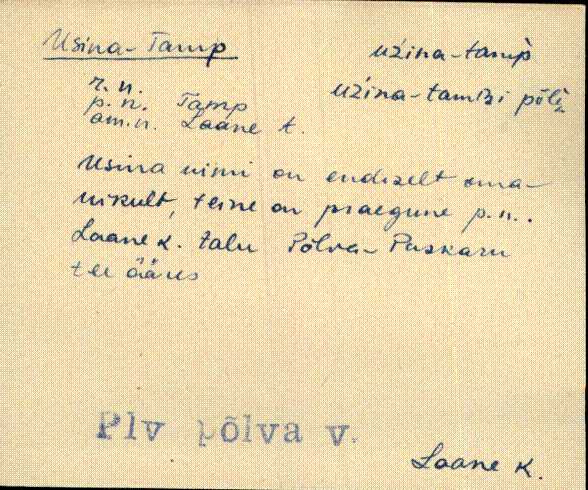 Usina-Tamp
užina-tamp̀
užina-tamBi põlì
r. n.
p. n. Tamp
am. n. Laane t.
Usina nimi on endiselt oma-
nikult, teine on praegune p. n..
Laane k. talu Põlva-Puskaru
tee ääres
Plv põlva v.
Laane K.